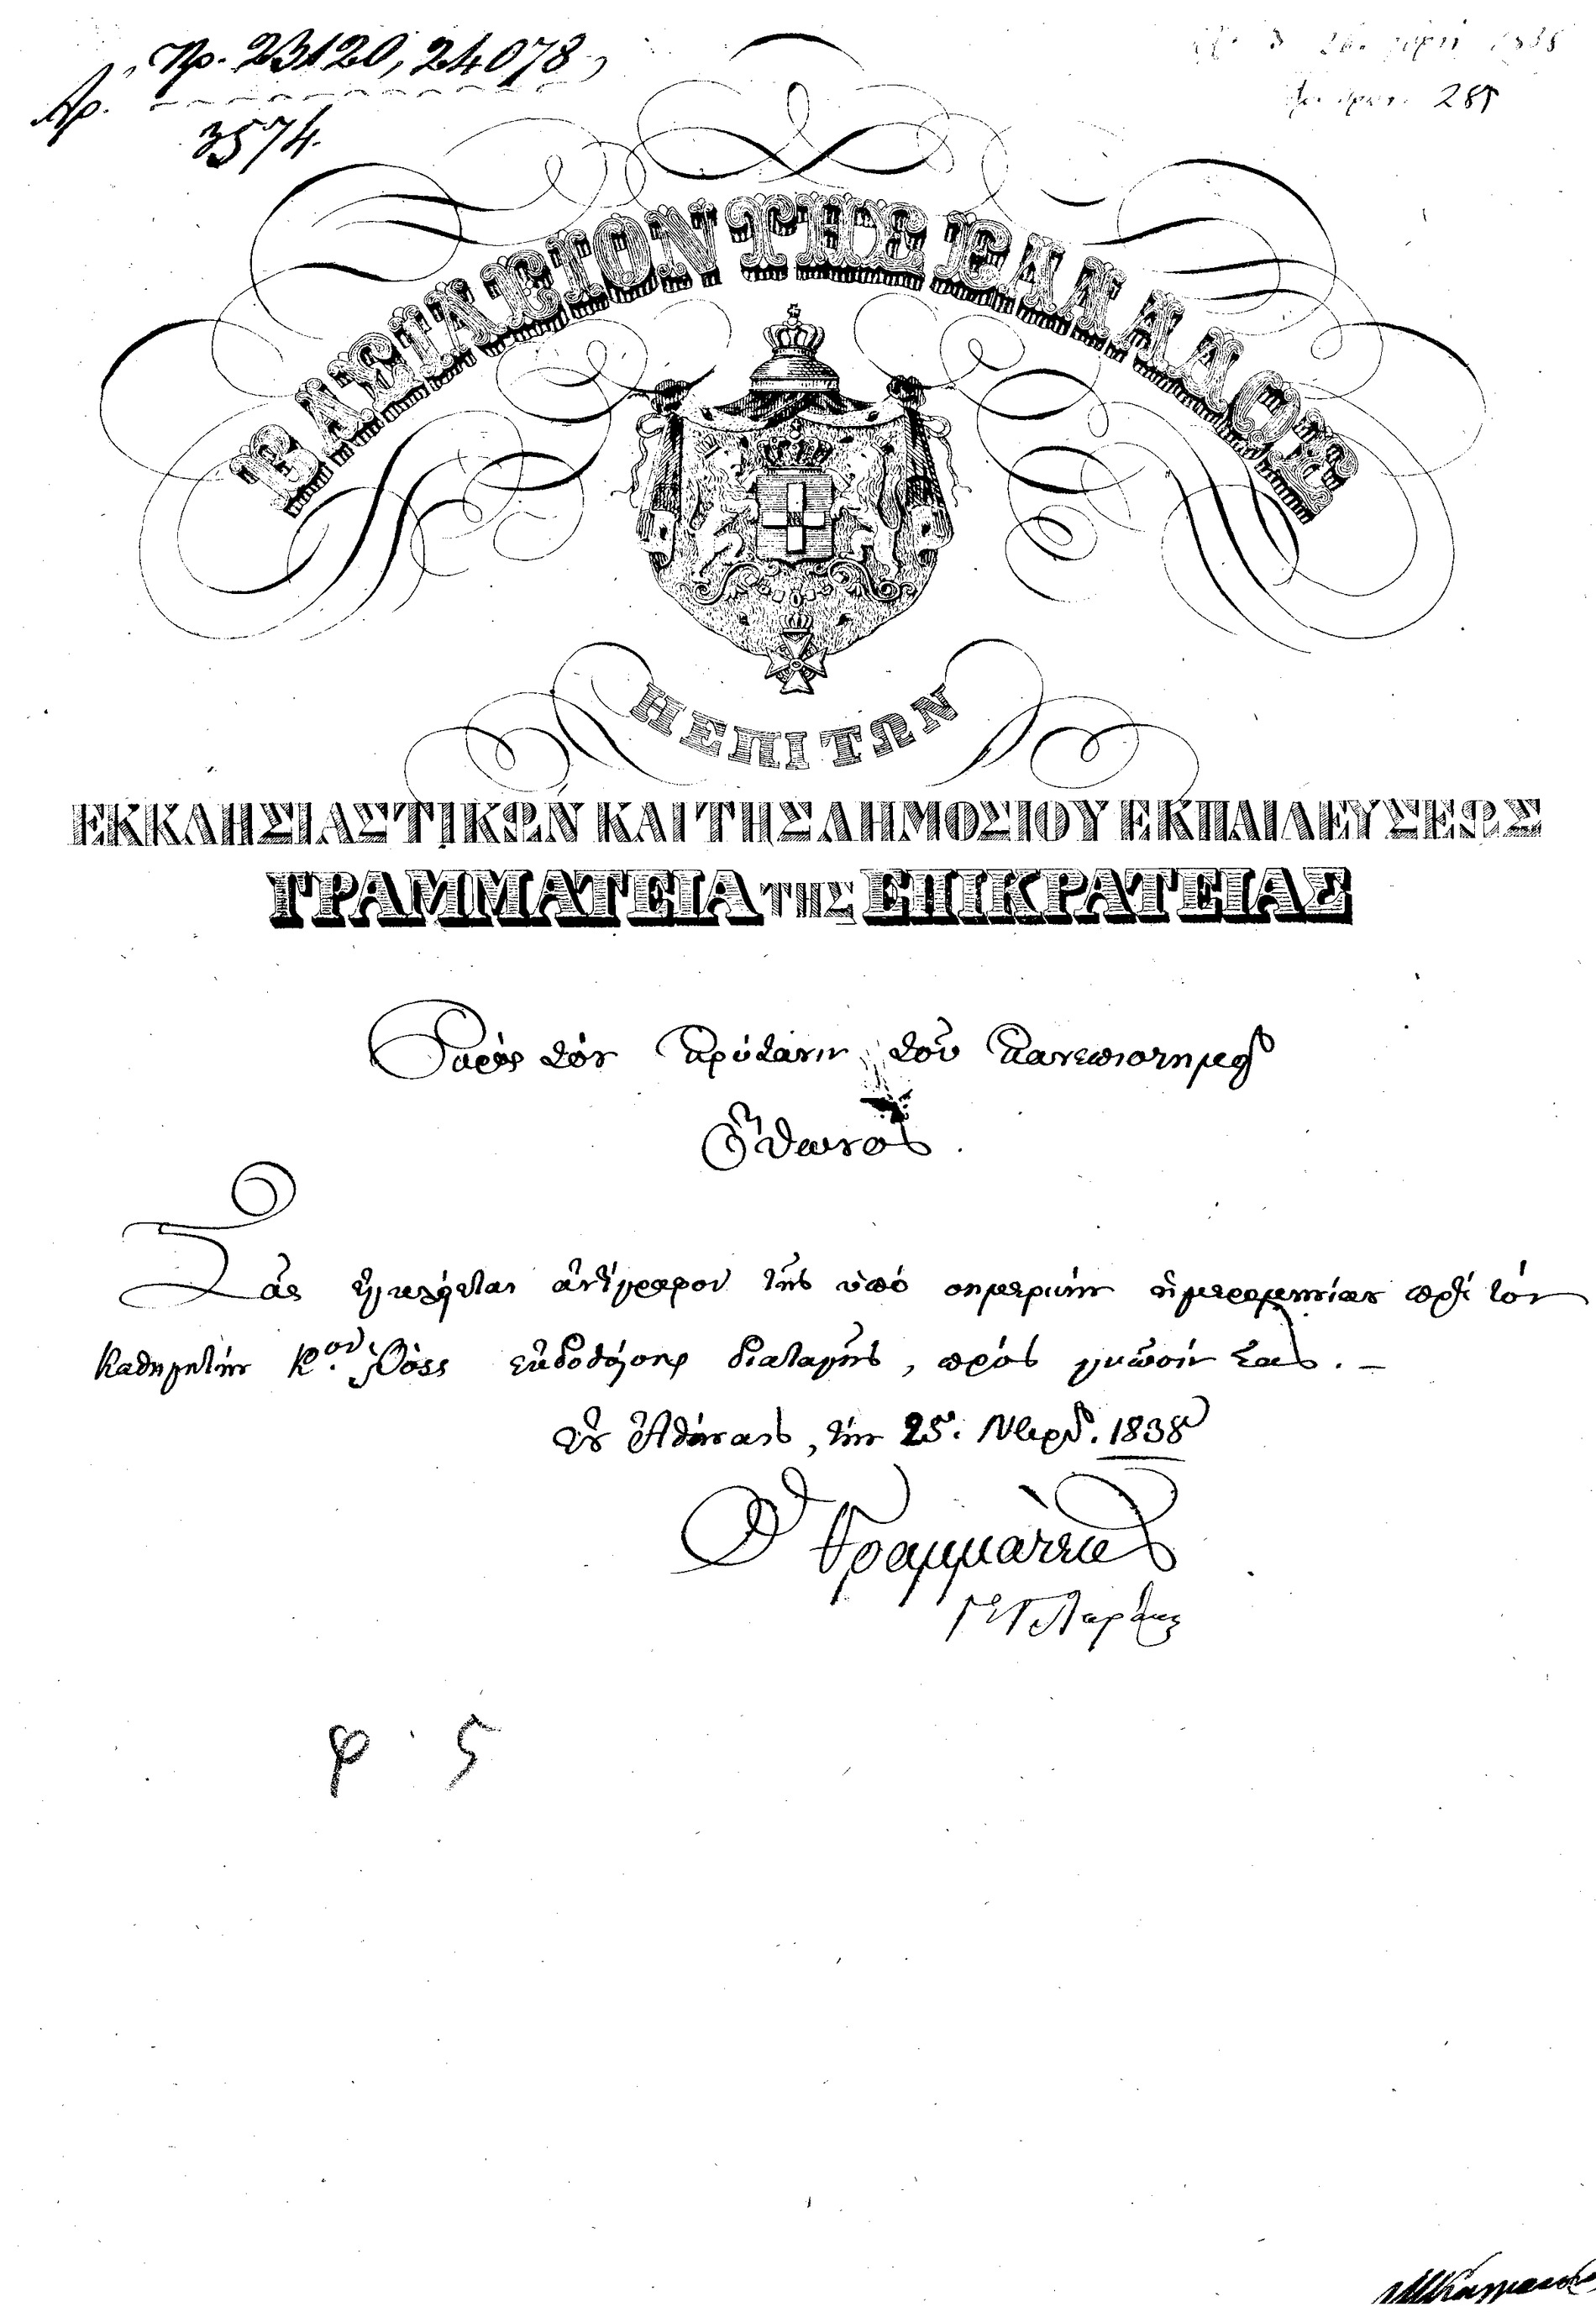 Πρ. 23120, 24078,
Αρ.
3574.
289
ΒΑΣΙΛΕΙΟΝ ΤΗΣ ΕΛΛΑΔΟΣ
Η ΕΠΙ ΤΩΝ
ΕΚΚΛΗΣΙΑΣΤΙΚΩΝ ΚΑΙ ΤΗΣ ΔΗΜΟΣΙΟΥ ΕΚΠΑΙΔΕΥΣΕΩΣ
ΓΡΑΜΜΑΤΕΙΑ ΤΗΣ ΕΠΙΚΡΑΤΕΙΑΣ
Πρὸς τὸν Πρύτανιν τοῦ Πανεπιστημίου
Ὄθωνος.
Σᾶς ἐγκλείεται ἀντίγραφον τῆς ὑπὸ σημερινὴν ἡμερομηνίαν πρὸς τὸν
Καθηγητὴν Κ.ον Ῥὸςς ἐκδοθείσης διαταγῆς, πρὸς γνῶσίν Σας. –
ἐν Ἀθήναις, τὴν 25. Νβρίου. 1838
Ὁ Γραμματεὺς
Φ. 5